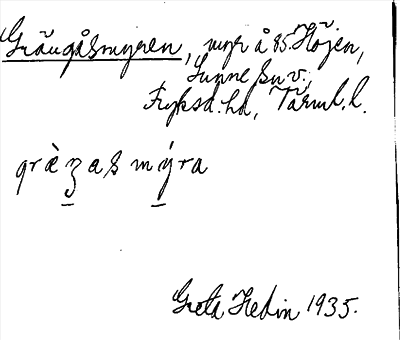 Grängåsmyren, myr å 85. Höjen,
Sunne sn v.,
Fryksd. hd, Värml. l.
grὲzasmýra
Greta Hedin 1935.